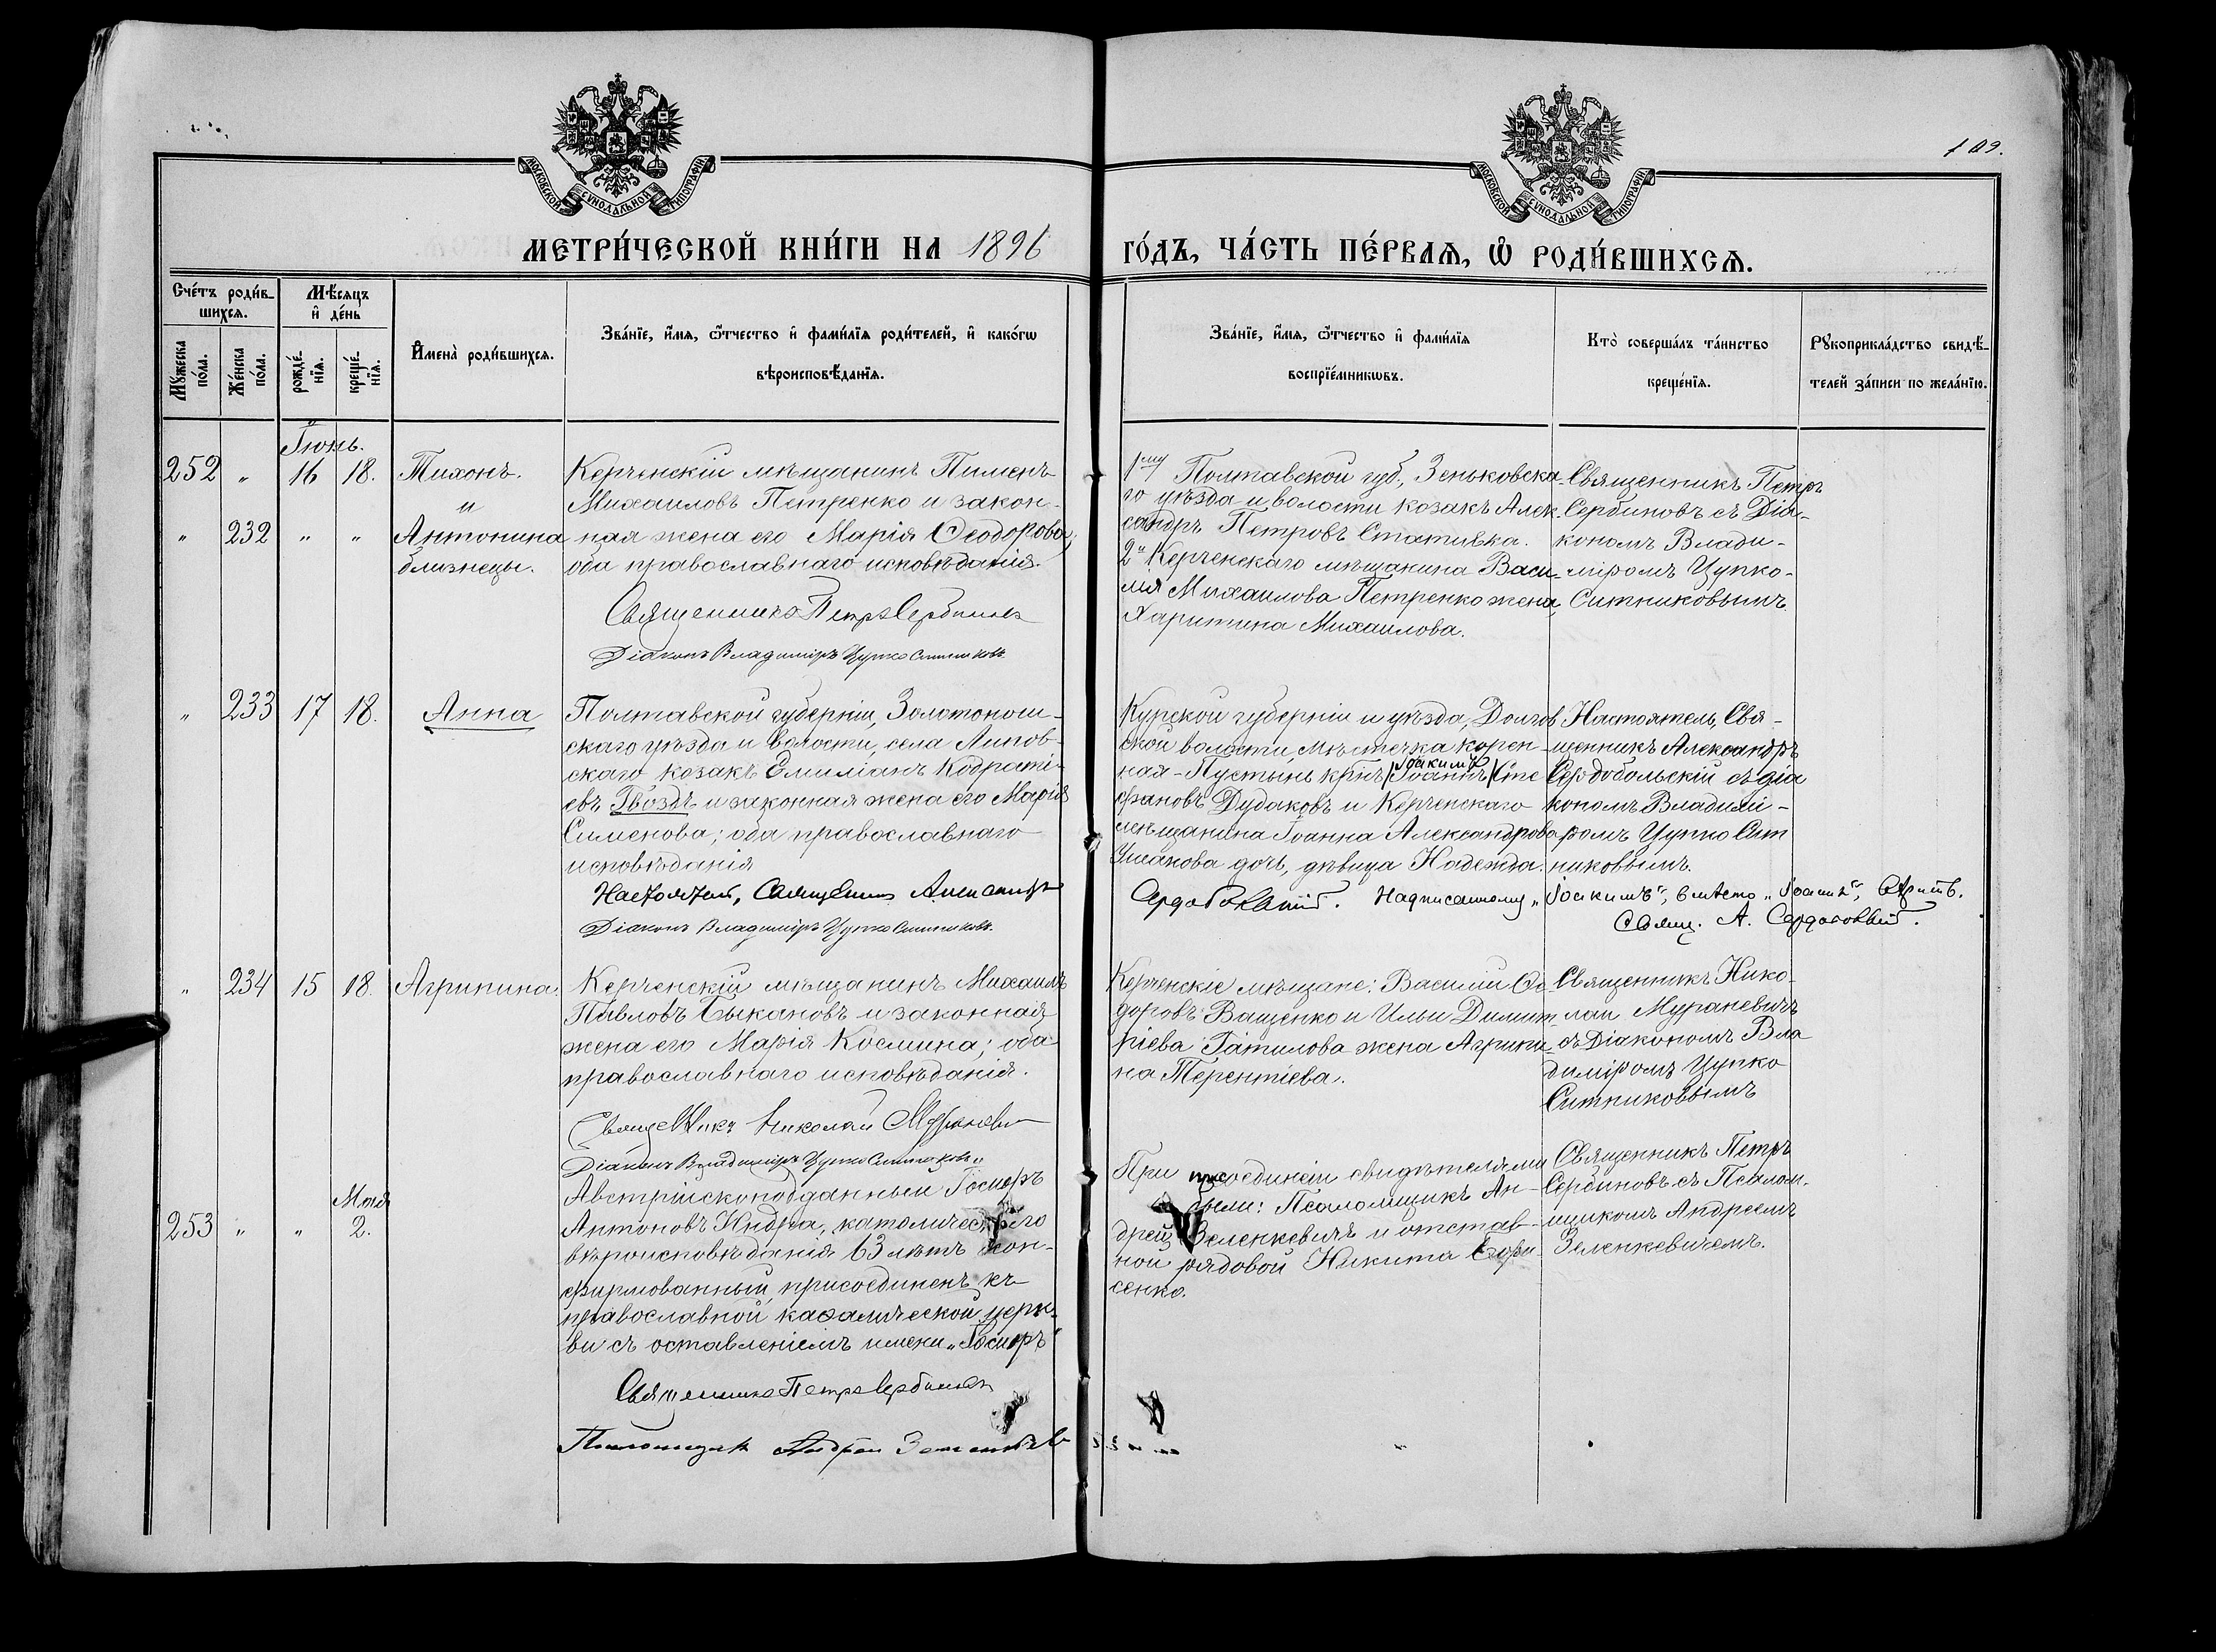 109.
МОСКОВСКОЙ СѴНОДАЛЬНОЙ ТИПОГРАФІИ
МОСКОВСКОЙ СѴНОДАЛЬНОЙ ТИПОГРАФІИ
МЕТРИ́ЧЕСКОЙ КНИ́ГИ НА 1896 ГО́ДЪ, ЧА́СТЬ ПЕ́РВАѦ, Ѡ РОДИ́ВШИХСѦ.
Сче́тъ роди́в-
шихсѧ.
Мꙋ́жеска по́ла.
Же́нска по́ла.
Мѣ́сѧцъ
и҆ де́нь
рожде́нїѧ.
креще́нїѧ.
И҆мена̀ роди́вшихсѧ.
Зва́нїе, и҆́мѧ, ѻ҆́тчество и҆ фами́лїѧ роди́телей, и҆ како́гѡ
вѣроисповѣ́данїѧ.
Зва́нїе, и҆́мѧ, ѻ҆́тчество и҆ фами́лїѧ
воспрїе́мникѡвъ.
Кто̀ соверша́лъ та́инство
креще́нїѧ.
Рꙋкоприкла́дство свидѣ́-
телей за́писи по жела́нїю.
Іюнь.
252 " 16 18. Тихонъ.
и
" 232 " " Антонина
близнецы.
Керченскій мѣщанинъ Пименъ
Михаиловъ Петренко и закон-
ная жена его Марія Ѳеодорова;
оба православнаго исповѣданія.
Священникъ Петръ Сербиновъ
Діаконъ Владиміръ Цупко Ситниковъ.
1му Полтавской губ., Зеньковска-
го уѣзда и волости козакъ Алек-
сандръ Петровъ Стативка.
2й Керченскаго мѣщанина Васи-
лія Михаилова Петренко жена,
Харитина Михаилова.
Священникъ Петръ
Сербиновъ съ Діа-
кономъ Влади-
міромъ Цупко-
Ситниковымъ.
" 233 17 18. Анна
Полтавской губерніи, Золотонош-
скаго уѣзда и волости, села Липов-
скаго козакъ Емиліанъ Кодраті-
евъ Гвоздь и законная жена его Марія
Сименова; оба православнаго
исповѣданія
Настоятель, Священникъ Александръ
Сердобольскій.
Діаконъ Владиміръ Цупко Ситниковъ.
Курской губерніи и уѣзда, Долгов
ской волости, мѣстечка корен-
ная-Пустынь крнъ Іоакимъ /Іоаннъ/ Сте
фановъ Дудаковъ и Керченскаго
мѣщанина Іоанна Александрова
Ушакова дочь, дѣвица Надежда.
Настоятель, Свя-
щенникъ Александръ
Сердобольскій съ діа
кономъ Владимі-
ромъ Цупко Сит
никовымъ.
Надписанному „Іоакимъ“, вмѣсто „Іоаннъ“, вѣрить.
Свящ. А. Сердобольскій.
" 234 15 18. Агрипина.
Керченскій мѣщанинъ Михаилъ
Павловъ Быкановъ и законная
жена его Марія Космина; оба
православнаго исповѣданія.
Священникъ Николай Мураневичъ
Діаконъ Владиміръ Цупко Ситниковъ.
Керченскіе мѣщане: Василій Ѳе-
доровъ Ващенко и Ильи Димит-
ріева Гатилова жена Агрипи-
на Терентіева.
Священникъ Нико-
лай Мураневичъ
съ Діакономъ Вла
диміромъ Цупко
Ситниковымъ
Мая
253 " " 2.
Австрійскоподданный Іосифъ
Антоновъ Индра, католическаго
вѣроисповѣданія 63 лѣтъ кон-
фирмованный, присоединенъ къ
православной каѳолической церк-
ви съ оставленіемъ имени „Іосифъ“
Священникъ Петръ Сербиновъ
Псаломщикъ Андрей Зеленкевичъ
При присоединеніи свидѣтелями
были: Псаломщикъ Ан-
дрей Зеленкевичъ и отстав-
ной рядовой Никита
сенко.
Священникъ Петръ
Сербиновъ съ Псалом-
щикомъ Андреемъ
Зеленкевичемъ.